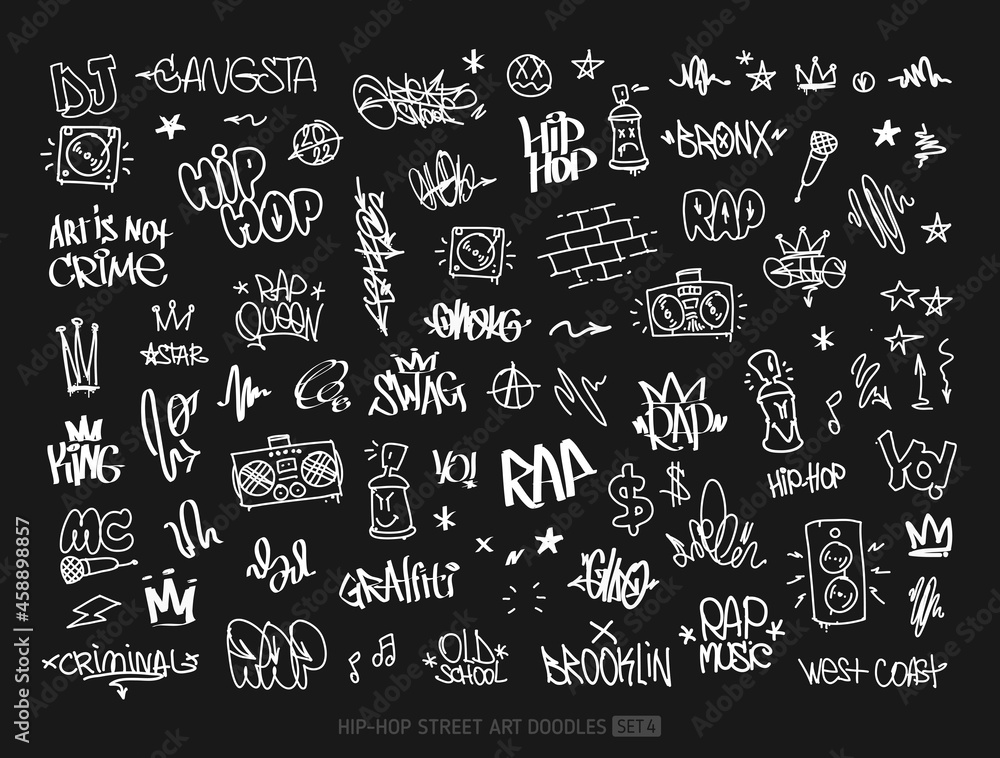 DJ
GANGSTA
SCHOOL
HIP
HOP
"BRONX"
20
22
HIP
HOP
RAP
ART IS NOT
CRIME
*RAP*
QUEEN
STAR
SWAG
A
RAP
KING
YO!
RAP
HIP-HOP
YO!
$
$
MC
GRAFFITI
CRIMINAL
*OLD*
SCHOOL
BROOKLIN
*RAP*
MUSIC
WEST COAST
HIP-HOP STREET ART DOODLES SET 4
Adobe Stock | #458898857